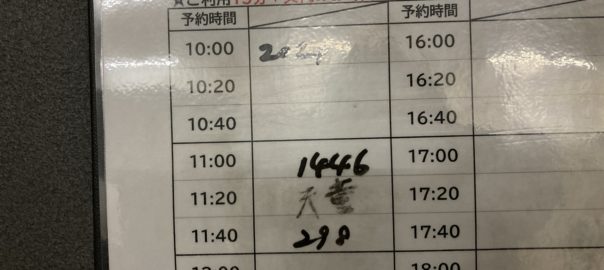 ★ご利用15分
予約時間 予約時間
10:00 16:00
10:20 16:20
10:40 16:40
11:00 1446 17:00
11:20 天童 17:20
11:40 298 17:40
12:00 18:00